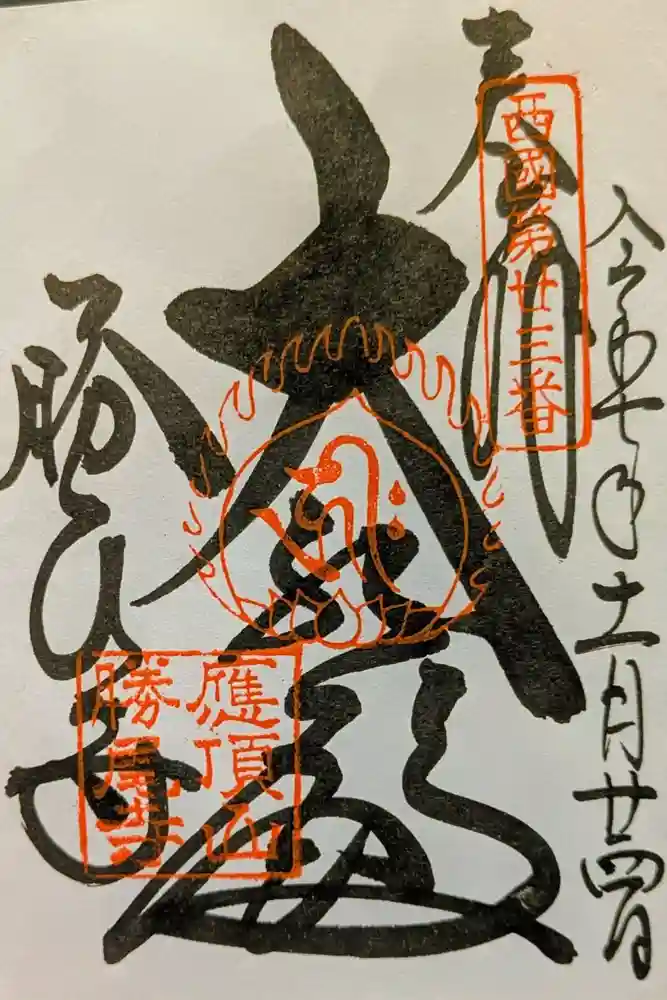 奉拝
西國第廿三番
令和七年十一月廿四日
大悲殿
勝尾寺
應頂山
勝尾寺